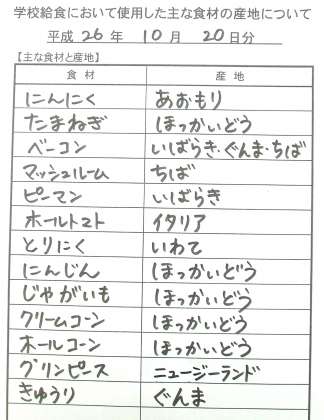 学校給食において使用した主な食材の産地について
平成 26 年 10 月 20 日分
【主な食材と産地】
食材 産地
にんにく あおもり
たまねぎ ほっかいどう
ベーコン いばらき・ぐんま・ちば
マッシュルーム ちば
ピーマン いばらき
ホールトマト イタリア
とりにく いわて
にんじん ほっかいどう
じゃがいも ほっかいどう
クリームコーン ほっかいどう
ホールコーン ほっかいどう
グリンピース ニュージーランド
きゅうり ぐんま